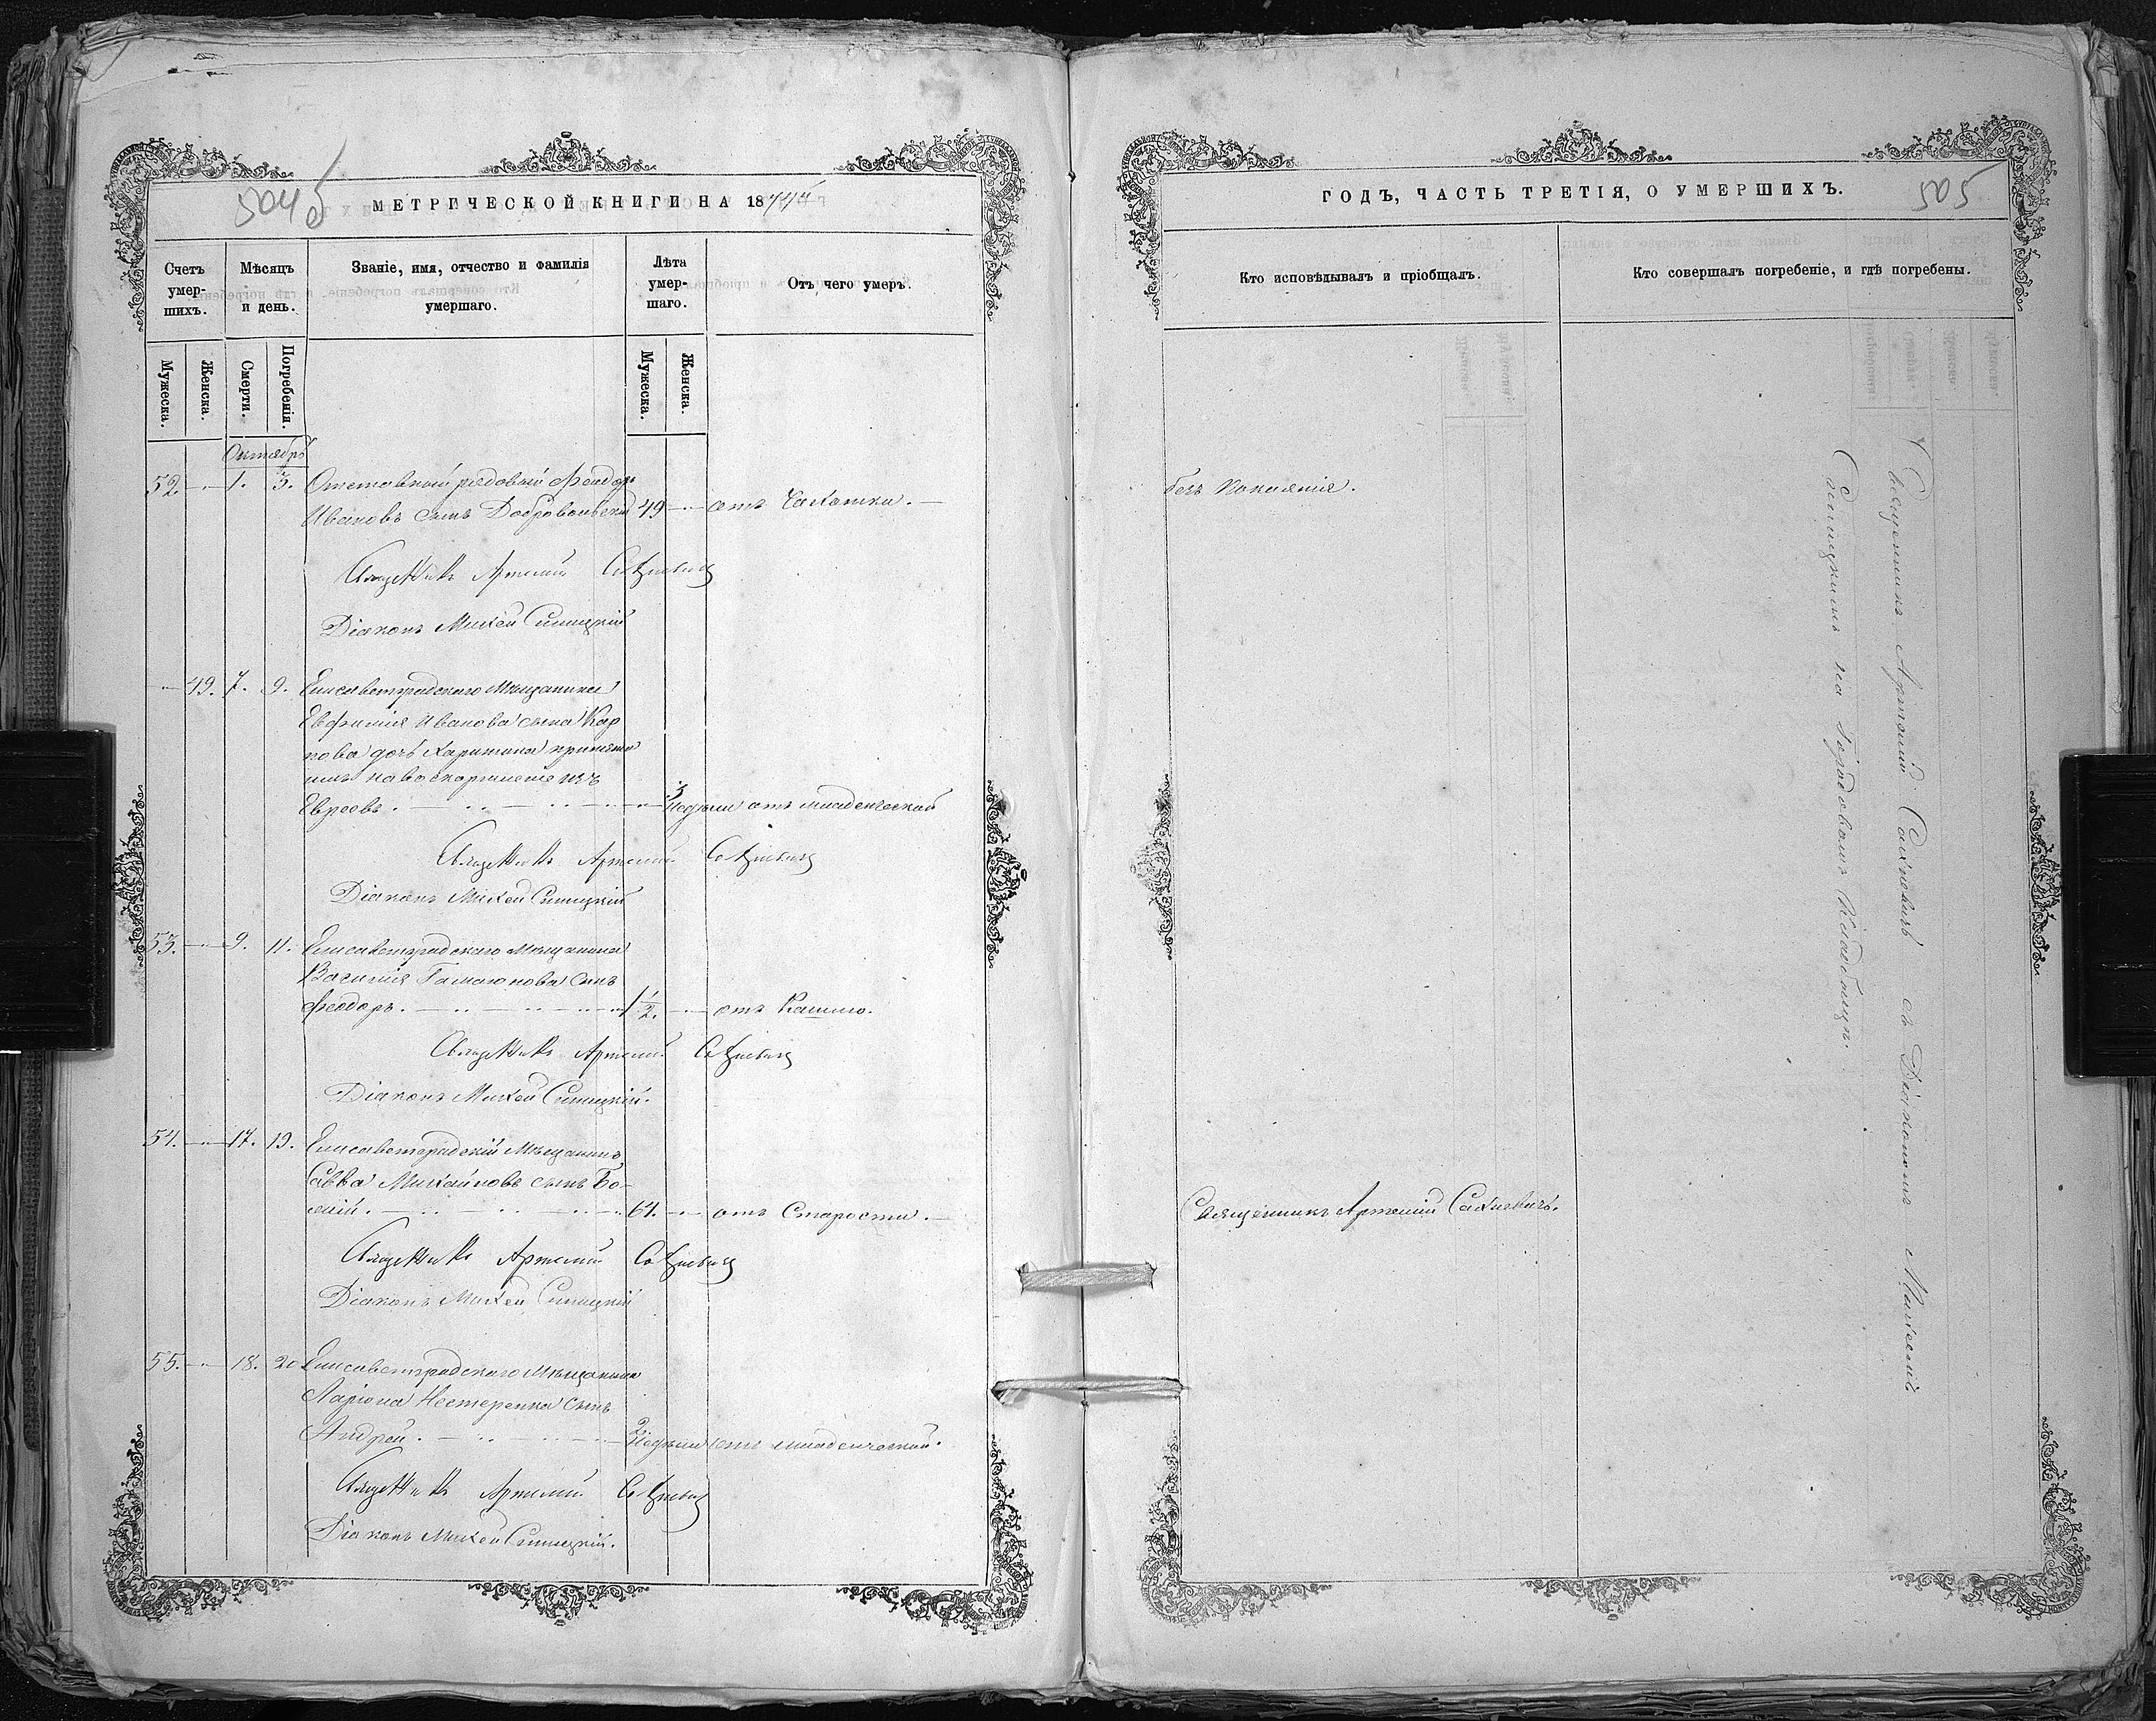 504 б
МЕТРИЧЕСКОЙ КНИГИ НА 18
Счетъ умер-шихъ.
Мѣсяцъ и день.
Званіе, имя, отчество и фамилія умершаго.
Лѣта умер-шаго.
Отъ чего умеръ.
Мужеска.
Женска.
Смерти.
Погребенія.
Мужеска.
Женска.
Октябрь
52. 1. 3. Отставный рядовый Феодоръ
Ивановъ сынъ Добровольскій 49 отъ Чахотки.
Священникъ Артемій Сахневичъ
Діаконъ Михей Синицкій
49. 7. 9. Елисаветградскаго Мѣщанина
Евфимія Иванова сына Кар
пова дочь Харитина принята
имъ на воспормленіе изъ
Евреевъ. 3 недѣли отъ младенческой
Священникъ Артемій Сахневичъ
Діаконъ Михей Синицкій
53. 9. 11. Елисаветградскаго Мѣщанина
Василія Гамаюнова сынъ
Феодоръ. 1 1/2. отъ Кашлю.
Священникъ Артемій Сахневичъ
Діаконъ Михей Синицкій.
54. 17. 19. Елисаветградскій Мѣщанинъ
Савва Михайловъ сынъ Бо-
64. отъ Старости.
Священникъ Артемій Сахневичъ
Діаконъ Михей Синицкій
55. 18. 20 Елисаветградскаго Мѣщанина
Ларіона Нестеренка сынъ
Андрей. 2 недѣли отъ младенческой.
Священникъ Артемій Сахневичъ
Діаконъ Михей Синицкій.
ГОДЪ, ЧАСТЬ ТРЕТІЯ, О УМЕРШИХЪ.
505
Кто исповѣдывалъ и пріобщалъ.
Кто совершалъ погребеніе, и гдѣ погребены.
безъ покаянія.
Священникъ Артемій Сахневичъ.
Священникъ Артемій Сахневичъ съ Діакономъ Михеемъ
Синицкимъ на Городовомъ Кладбищѣ.